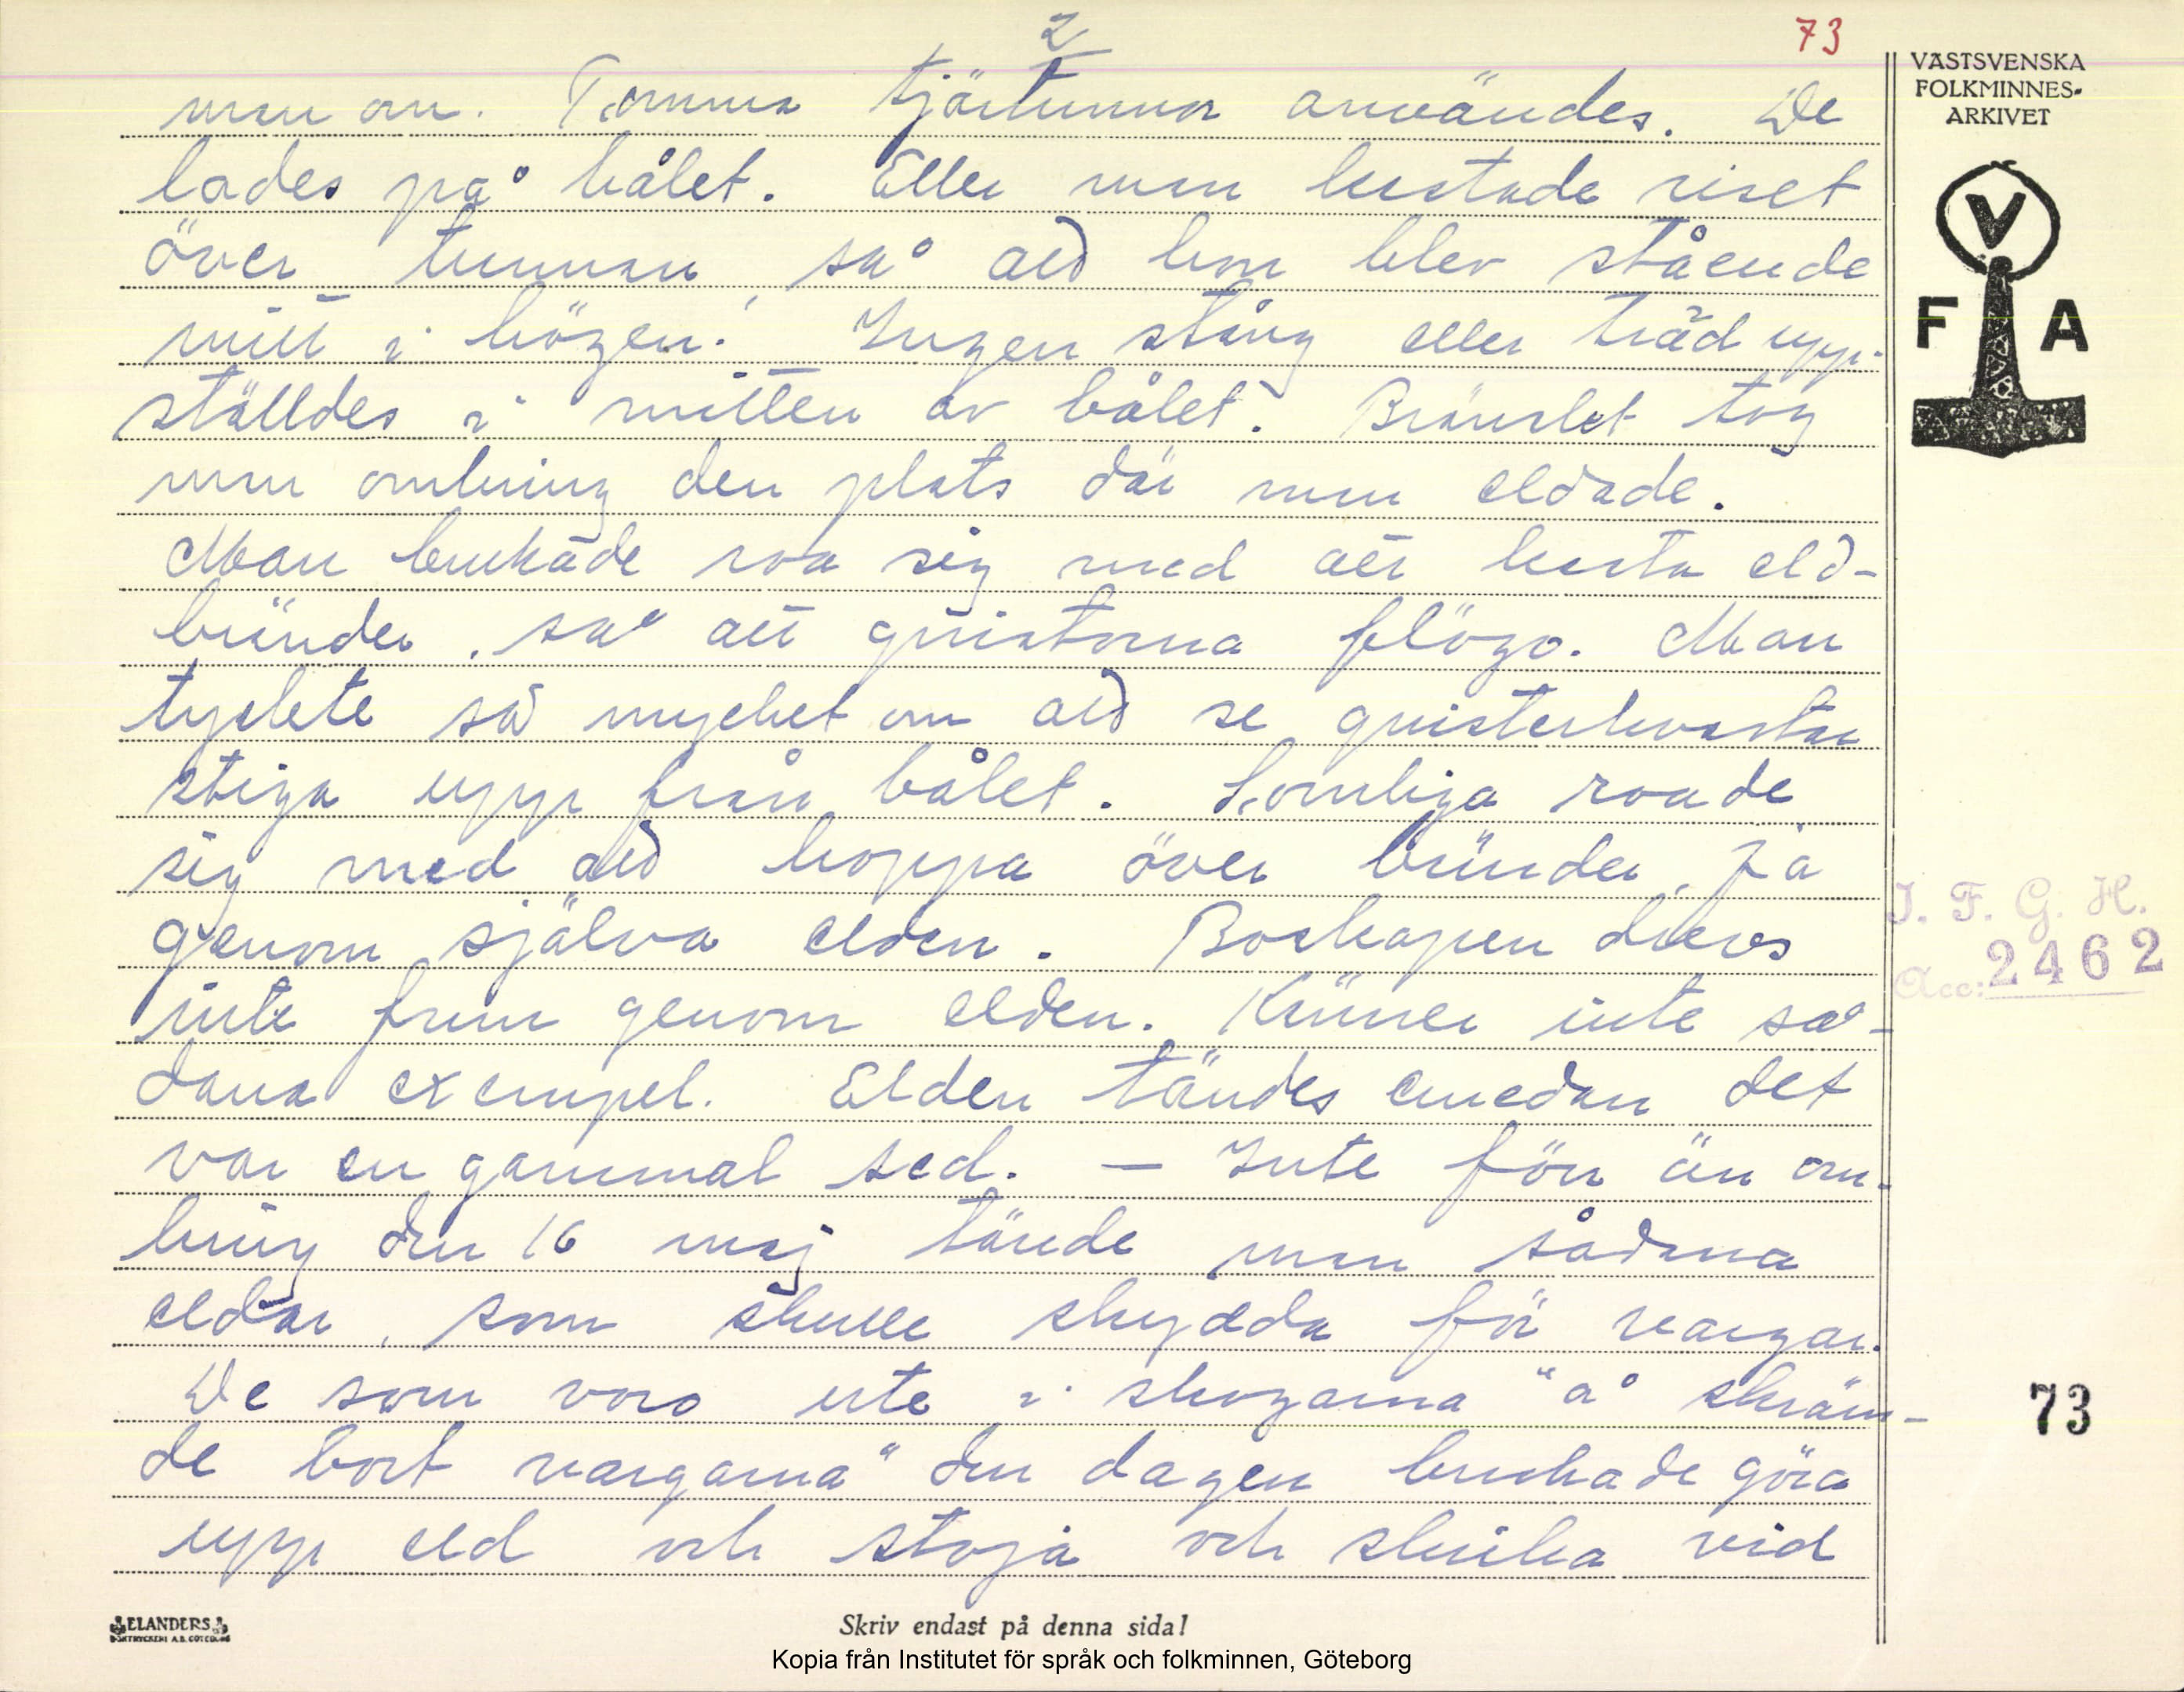 2
73
man om. Tomma tjärtunnor användes. De
lades på bålet. Eller man kastade riset
över tunnan, så att hon blev stående
mitt i högen. Ingen stång eller träd upp-
ställdes i mitten av bålet. Bränslet tog
man omkring den plats där man eldade.
Man brukade roa sig med att kasta eld-
bränder, så att gnistorna flögo. Man
tyckte så mycket om att se gnisterkvastar
stiga upp från bålet. Somliga roade
sig med att hoppa över bränder, ja
genom själva elden. Boskapen drevs
inte fram genom elden. Känner inte så-
dana exempel. Elden tändes emedan det
var en gammal sed. — Inte förr än om-
kring den 16 maj tände man sådana
eldar, som skulle skydda för vargar.
De som voro ute i skogarna "å skräm-
de bort vargarna" den dagen brukade göra
upp eld och stoja och skrika vid
VÄSTSVENSKA
FOLKMINNES-
ARKIVET
V
F A
I. F. G. H.
Acc: 2462
73
ELANDERS
BOKTRYCKERI A.B. GÖTEBORG
Skriv endast på denna sida!
Kopia från Institutet för språk och folkminnen, Göteborg